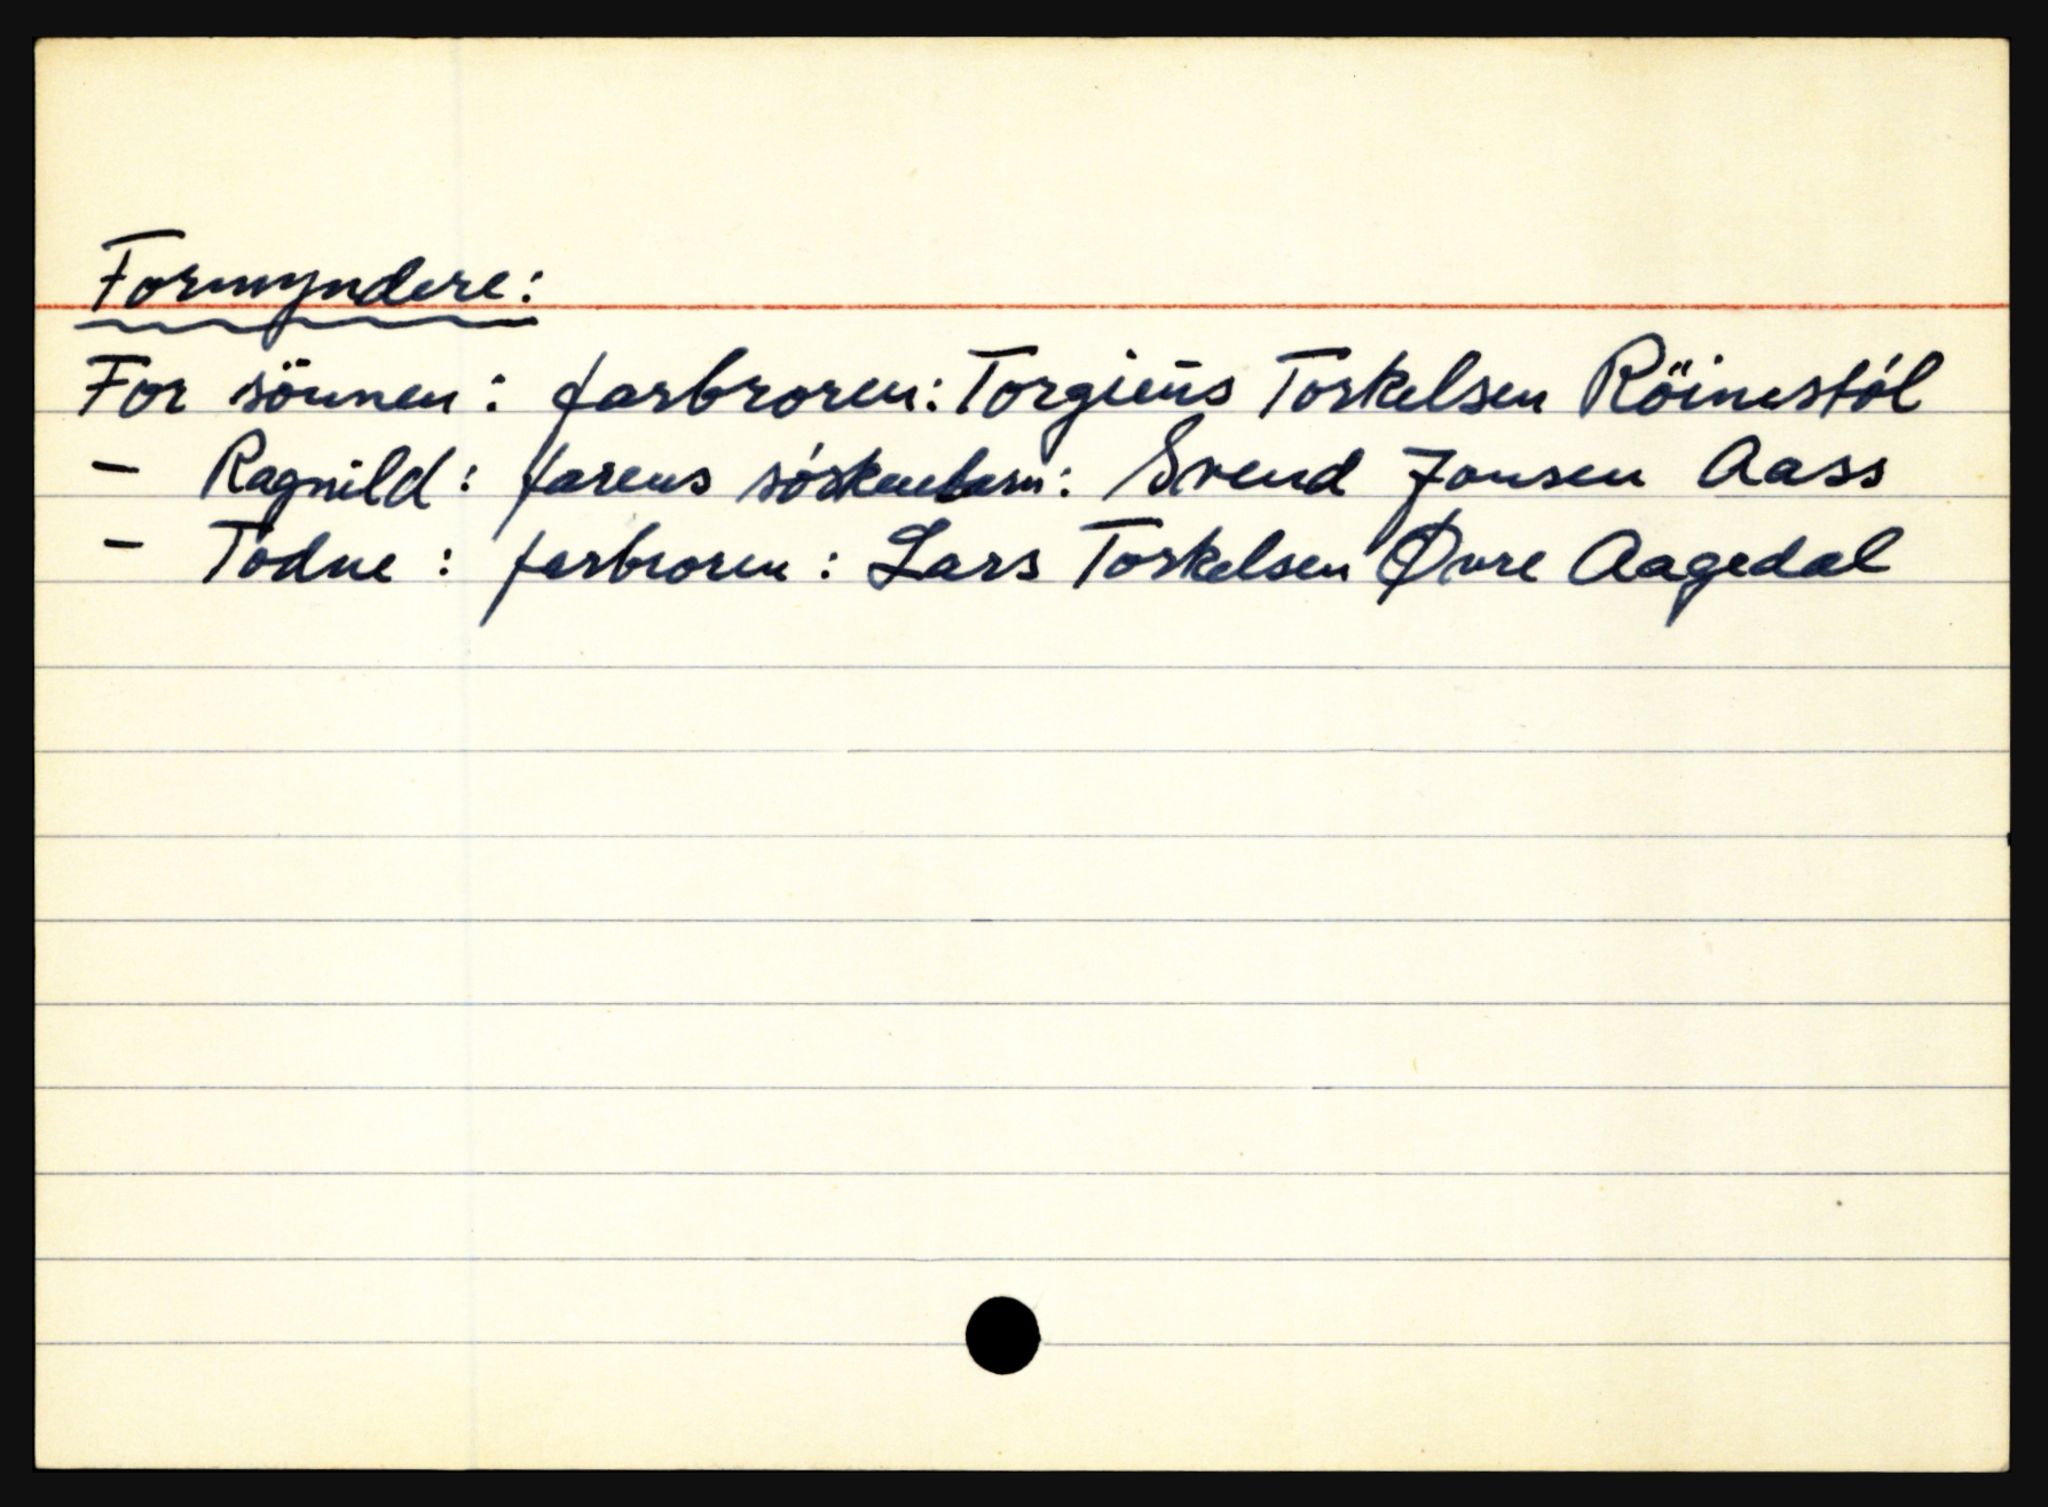 Formyndere:
For sönnen: farbroren: Torgiüs Torkelsen Röinestöl
- Ragnild: farens söskenbarn: Svend Jonsen Aass
- Todne: farbroren: Lars Torkelsen Øvre Aagedal